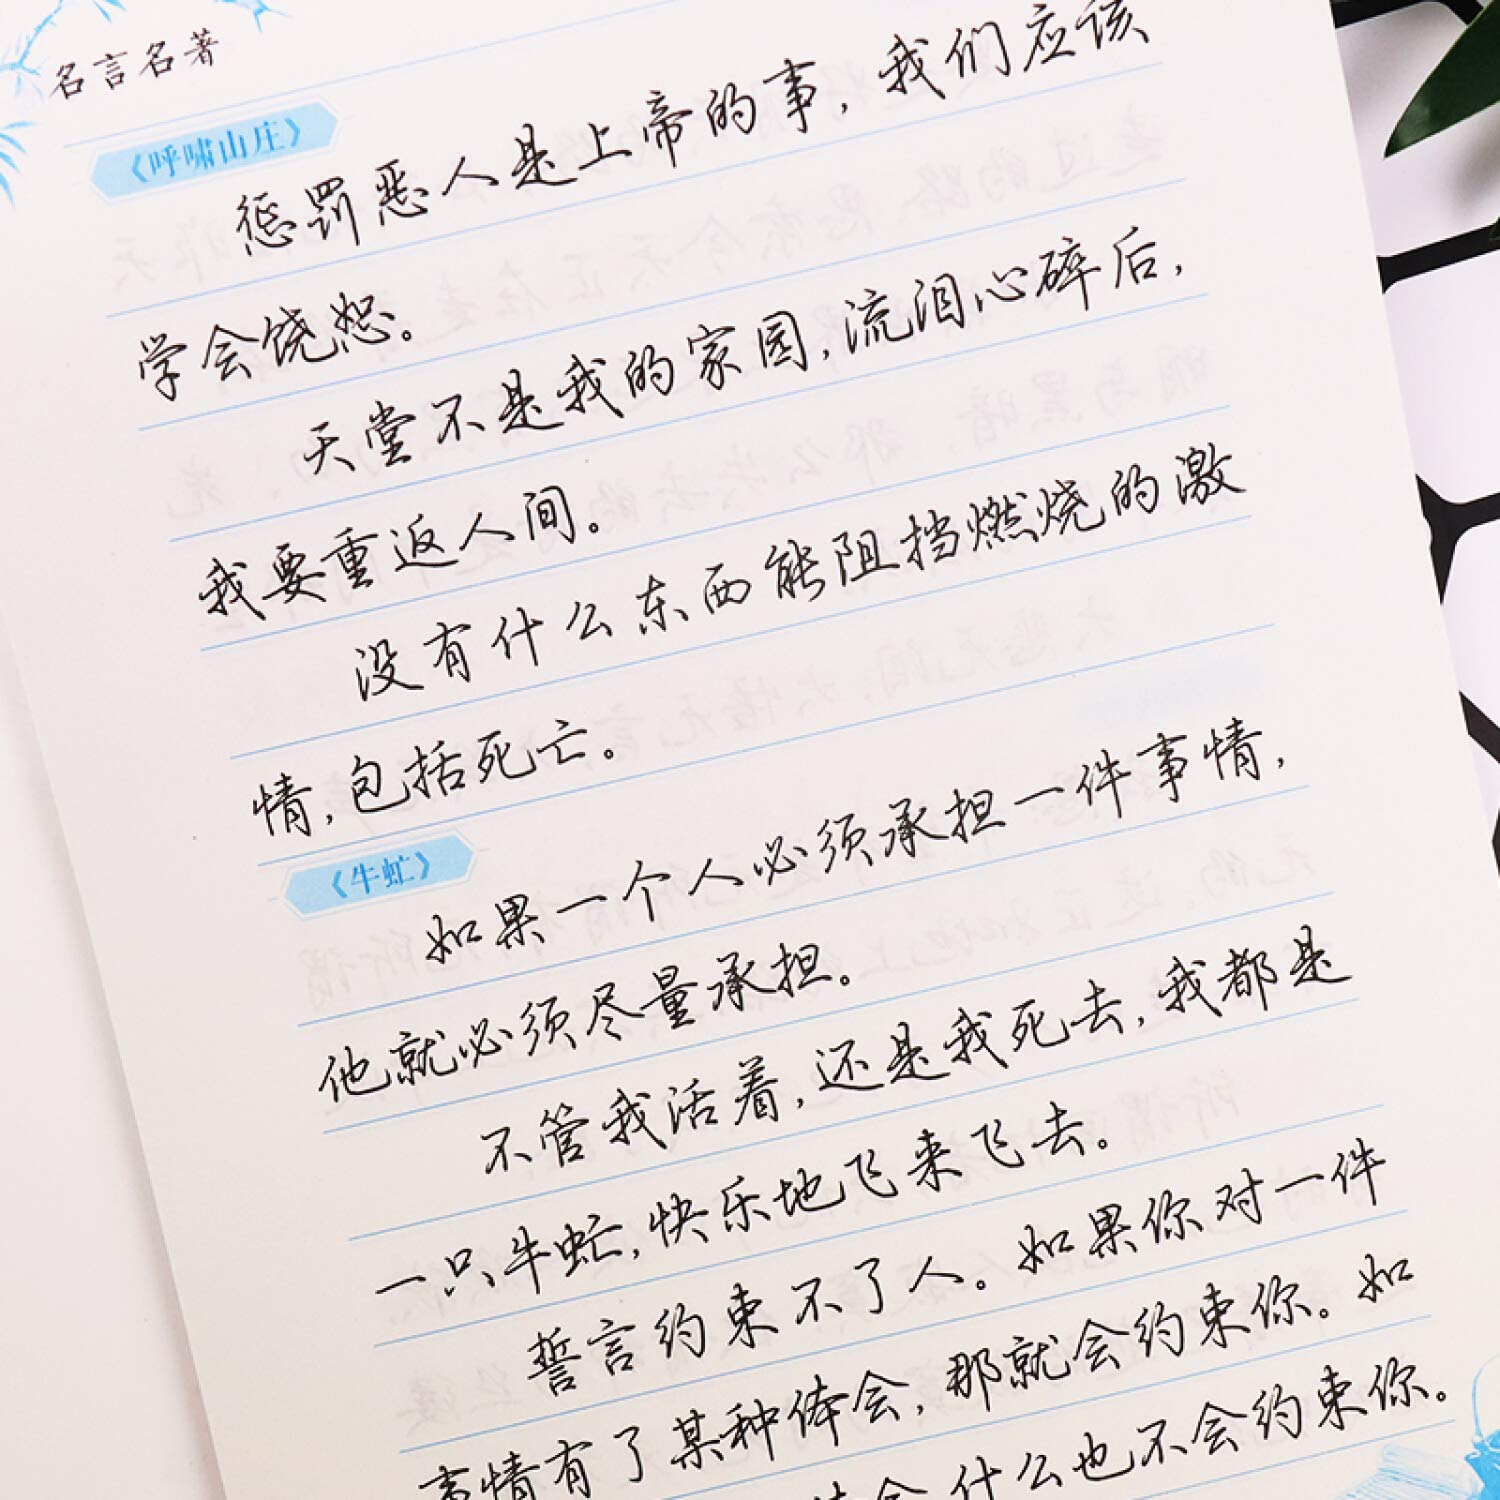 名言名著
《呼啸山庄》
惩罚恶人是上帝的事，我们应该
学会饶恕。
天堂不是我的家园，流泪心碎后，
我要重返人间。
没有什么东西能阻挡燃烧的激
情，包括死亡。
《牛虻》
如果一个人必须承担一件事情，
他就必须尽量承担。
不管我活着，还是我死去，我都是
一只牛虻，快乐地飞来飞去。
誓言约束不了人。如果你对一件
事情有了某种体会，那就会约束你。如
体会 什么也不会约束你。